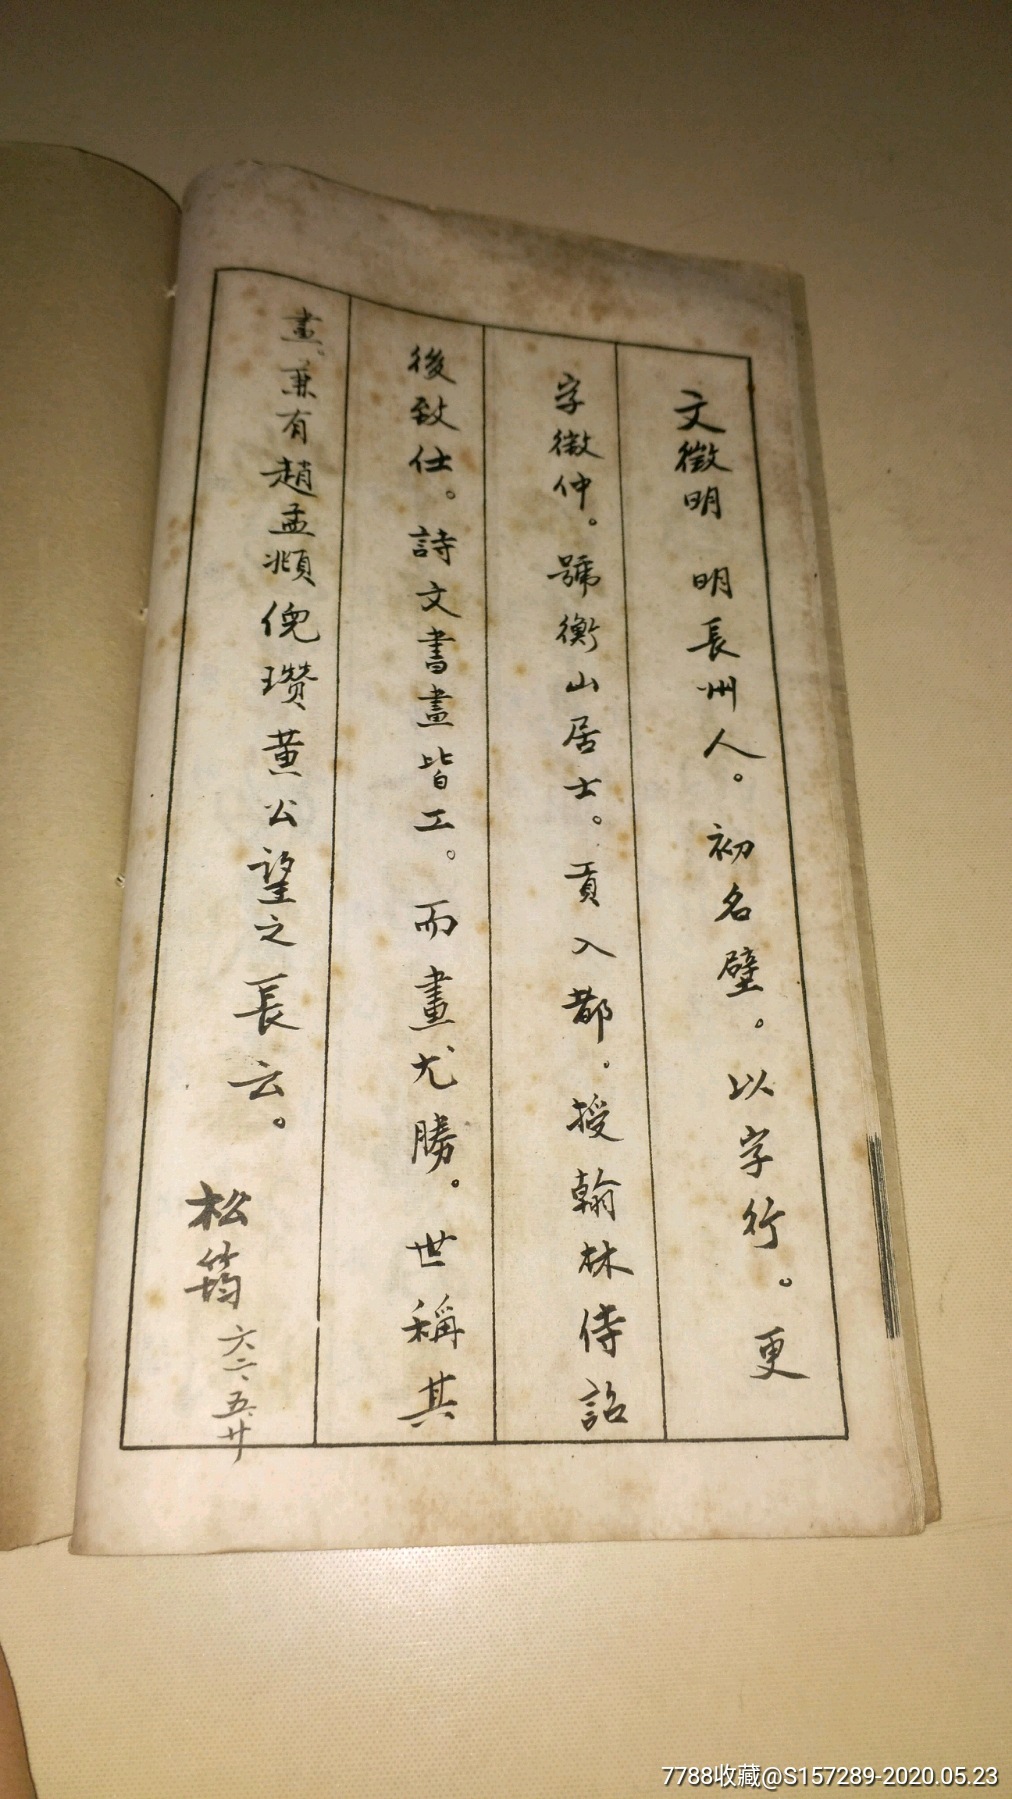 文徵明 明長州人。初名璧。以字行。更
字徵仲。號衡山居士。貢入都。授翰林侍詔
後致仕。詩文書畫皆工。而畫尤勝。世稱其
畫、兼有趙孟頫倪瓚黄公望之長云。
松筠 六二、五、廿
7788收藏@S157289-2020.05.23